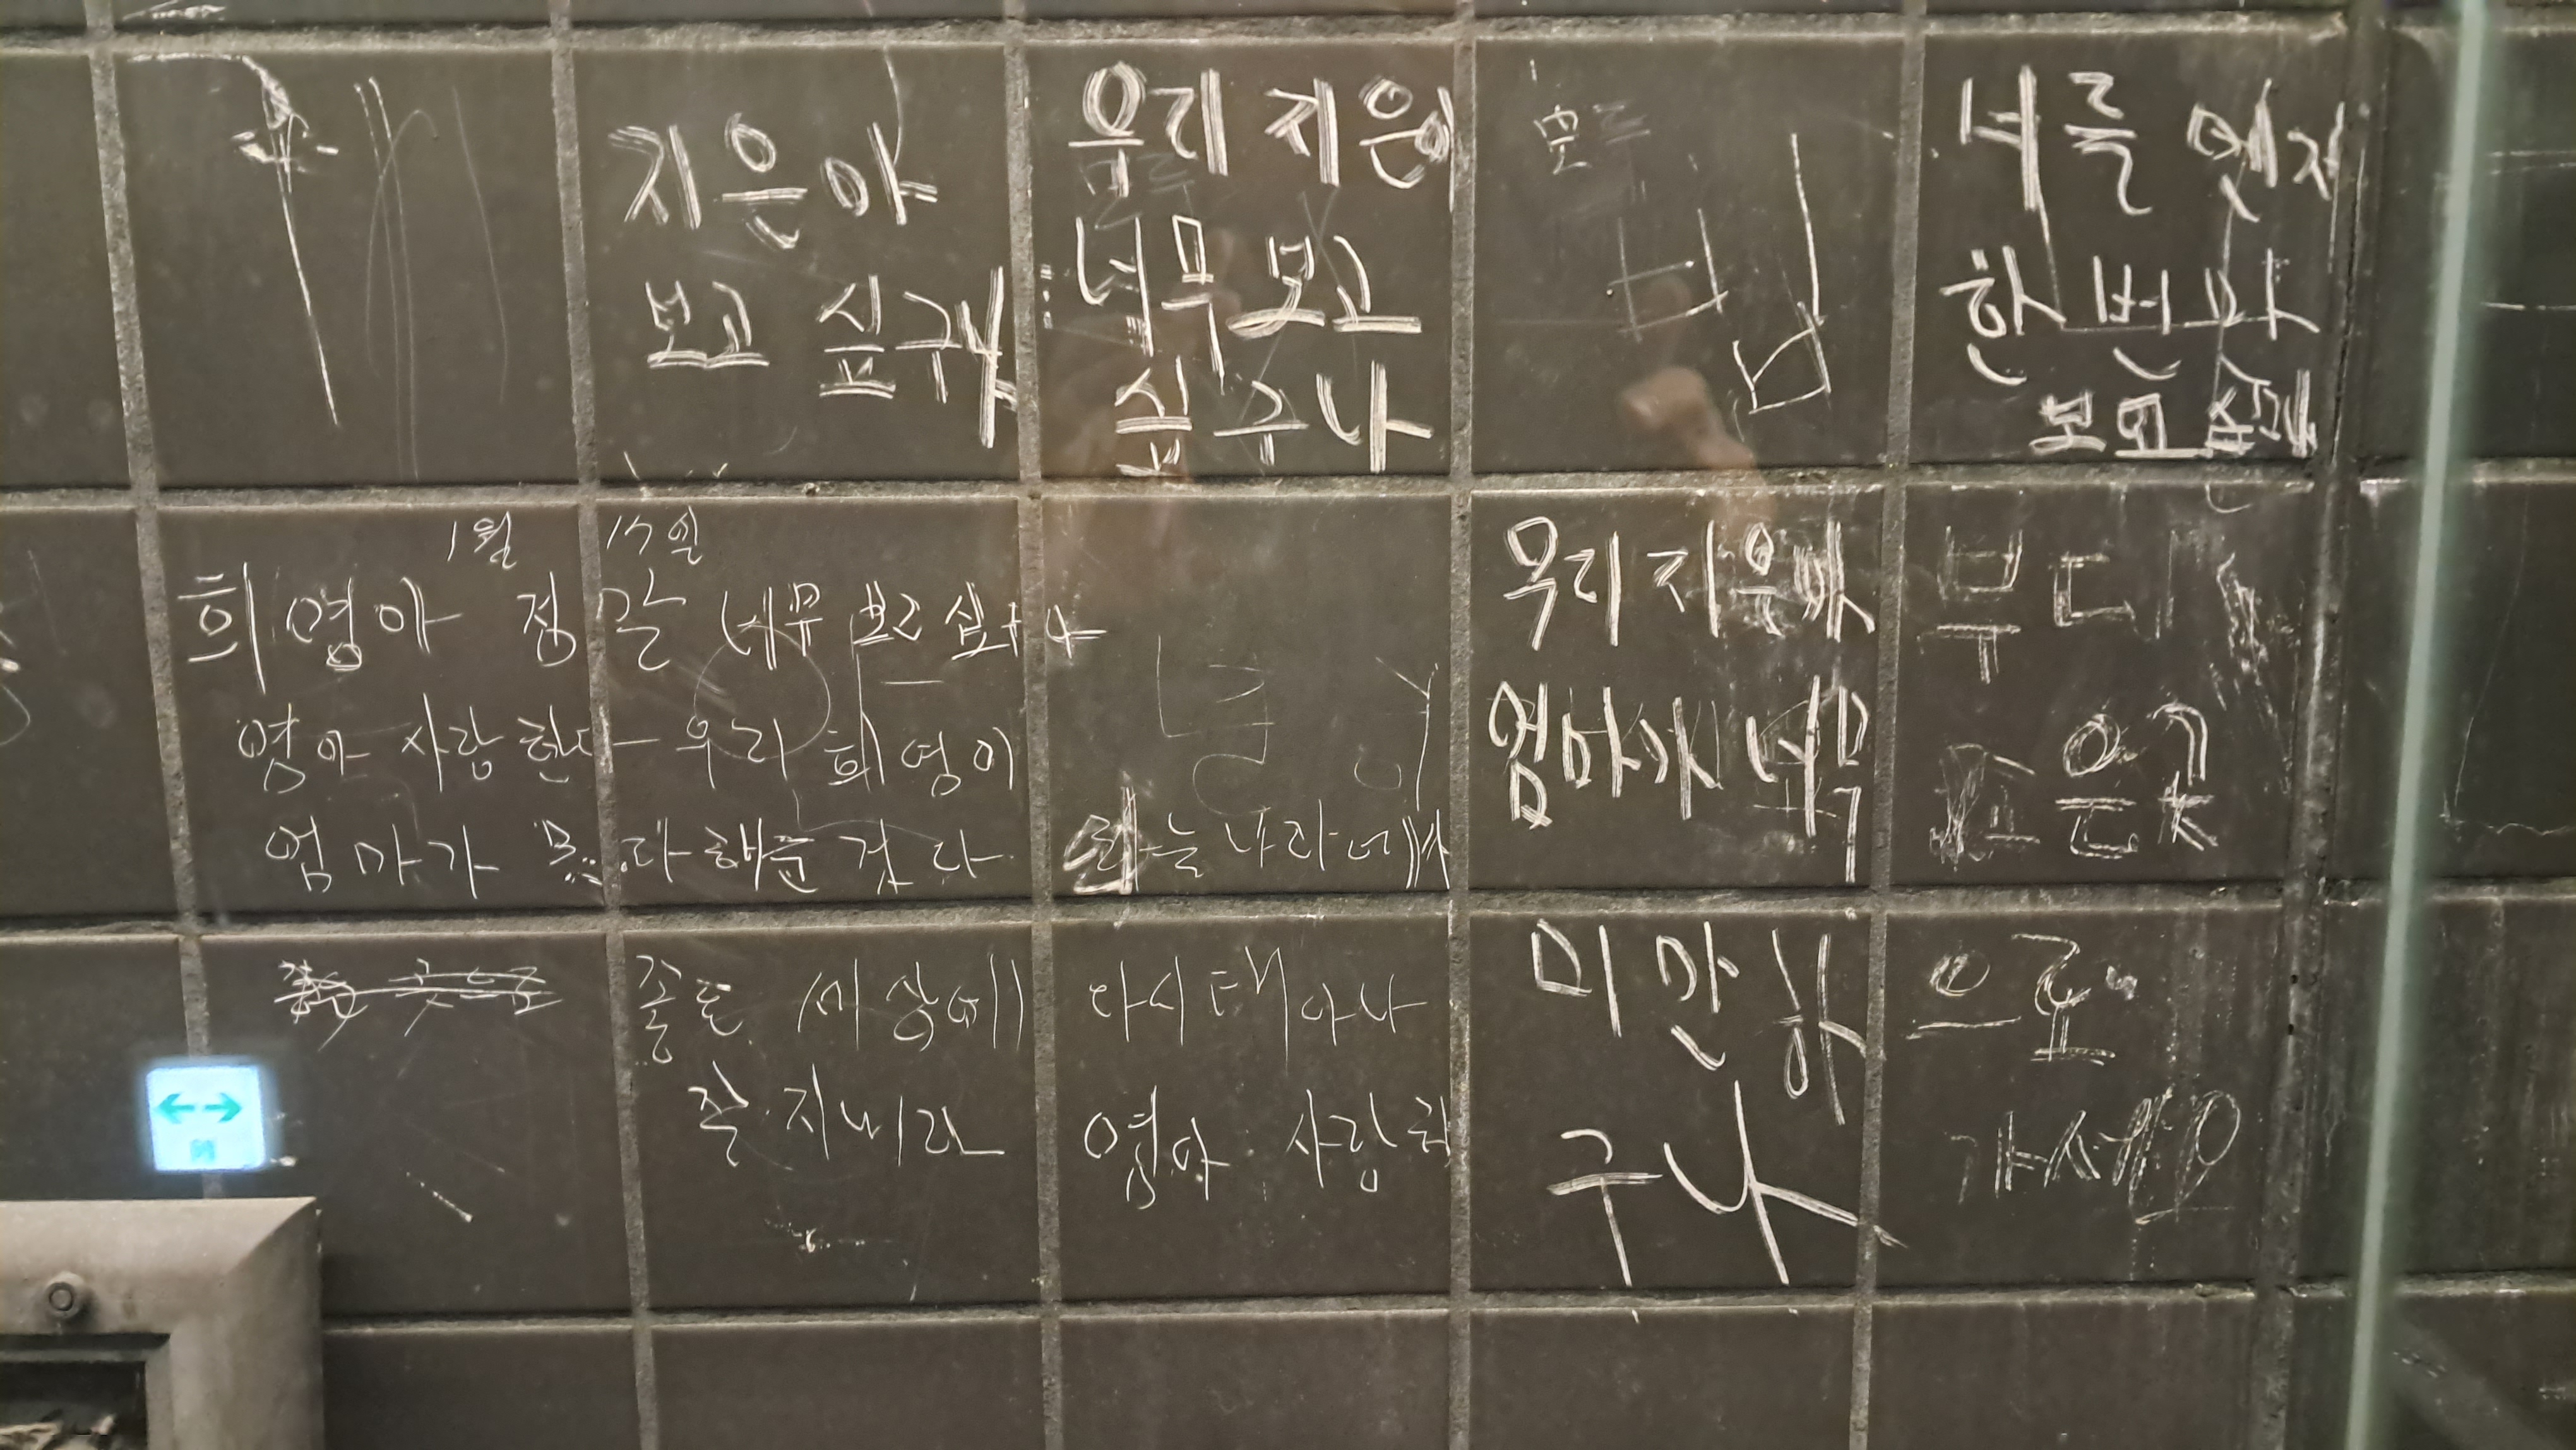 지은아
보고 싶구나
우리 지은이
너무 보고
싶구나
모두
너를 언제
한번 만
보고 싶
1월 17일
희영아 정말 너무 보고 싶구나
영아 사랑한다 우리 희영이
엄마가 못다해준것 다 하늘나라에서
좋은 세상에 다시 태어나
잘 지내라 영아 사랑해
우리 지은아
엄마가 너무
미안하
구나
부디
좋은 곳
으로
가세요